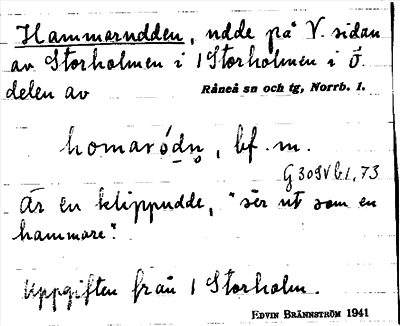 Hammarudden, udde på V. sidan
av Storholmen i 1 Storholmen i ö.
delen av Råneå sn och tg, Norrb. l.
homaró̱dn̥, bf. m.
G 309 V b 1, 73
Är en klippudde, "sër ut som en
hammare".
Uppgiften från 1 Storholm.
EDVIN BRÄNNSTRÖM 1941